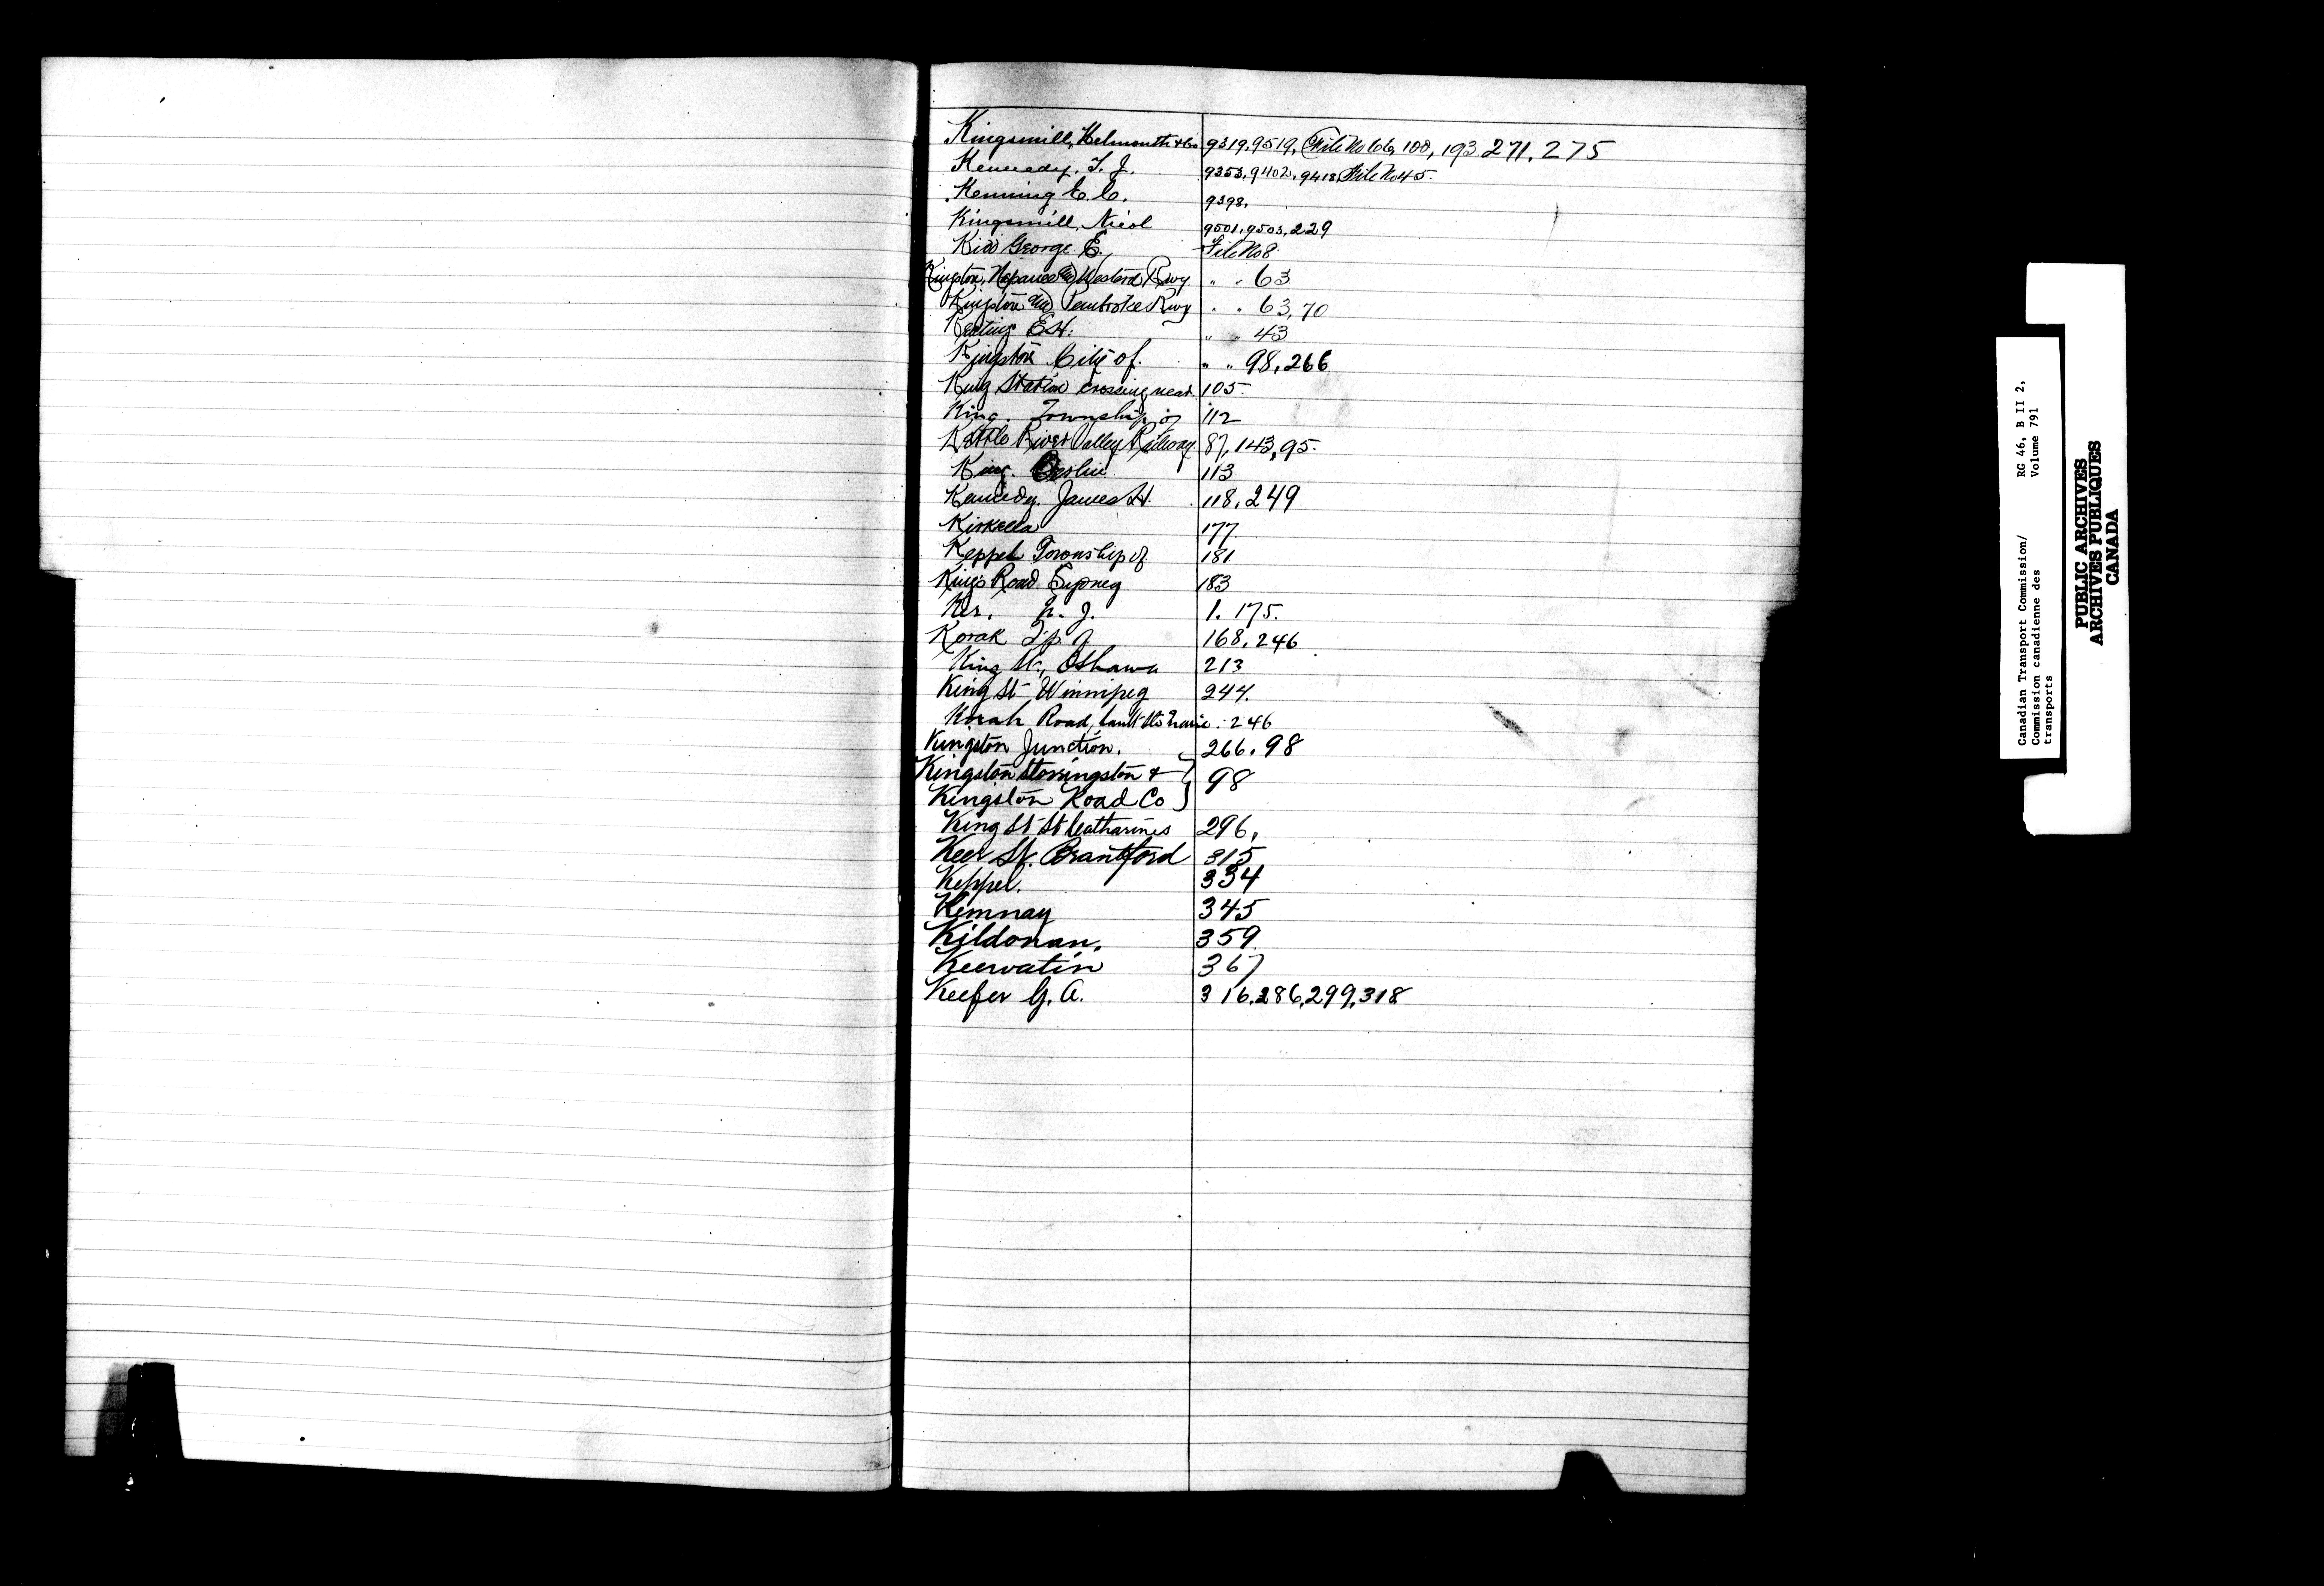 Kingsmill, Helmouth & Co 9319, 9519, File No 66, 100, 193 271, 275
Kennedy. T. J. 9353, 9402, 9418, File No 45.
Kenning E. C. 9398.
Kingsmill, Nicol 9501, 9503, 229
Kidd George E. File No 8.
Kingston, Napanee and Western Rwy. " " 63
Kingston and Pembroke Rwy " " 63, 70
Keating E H. " " 43
Kingston City of. " " 98, 266
King Station crossing near 105.
King. Township of 112
Kettle River Valley Railway. 87, 143, 95.
King. 113
Kennedy. James H. 118, 249
Kirkella 177.
Keppel Township of 181
King's Road Sydney 183
Ker. N. J. 1. 175.
Korah Tp. of 168, 246
King St., Oshawa 213
King St Winnipeg 244.
Korah Road, Sault Ste Marie. 246
Kingston Junction. 266. 98
Kingston Storrington & 98
Kingston Road Co
King St St Catharines 296,
Keer St. Brantford 315
Keppel. 334
Kemnay 345
Kildonan. 359.
Keewatin 367
Keefer G. A. 316, 286, 299, 318
Canadian Transport Commission/ RG 46, B II 2,
Commission canadienne des Volume 791
transports
PUBLIC ARCHIVES
ARCHIVES PUBLIQUES
CANADA